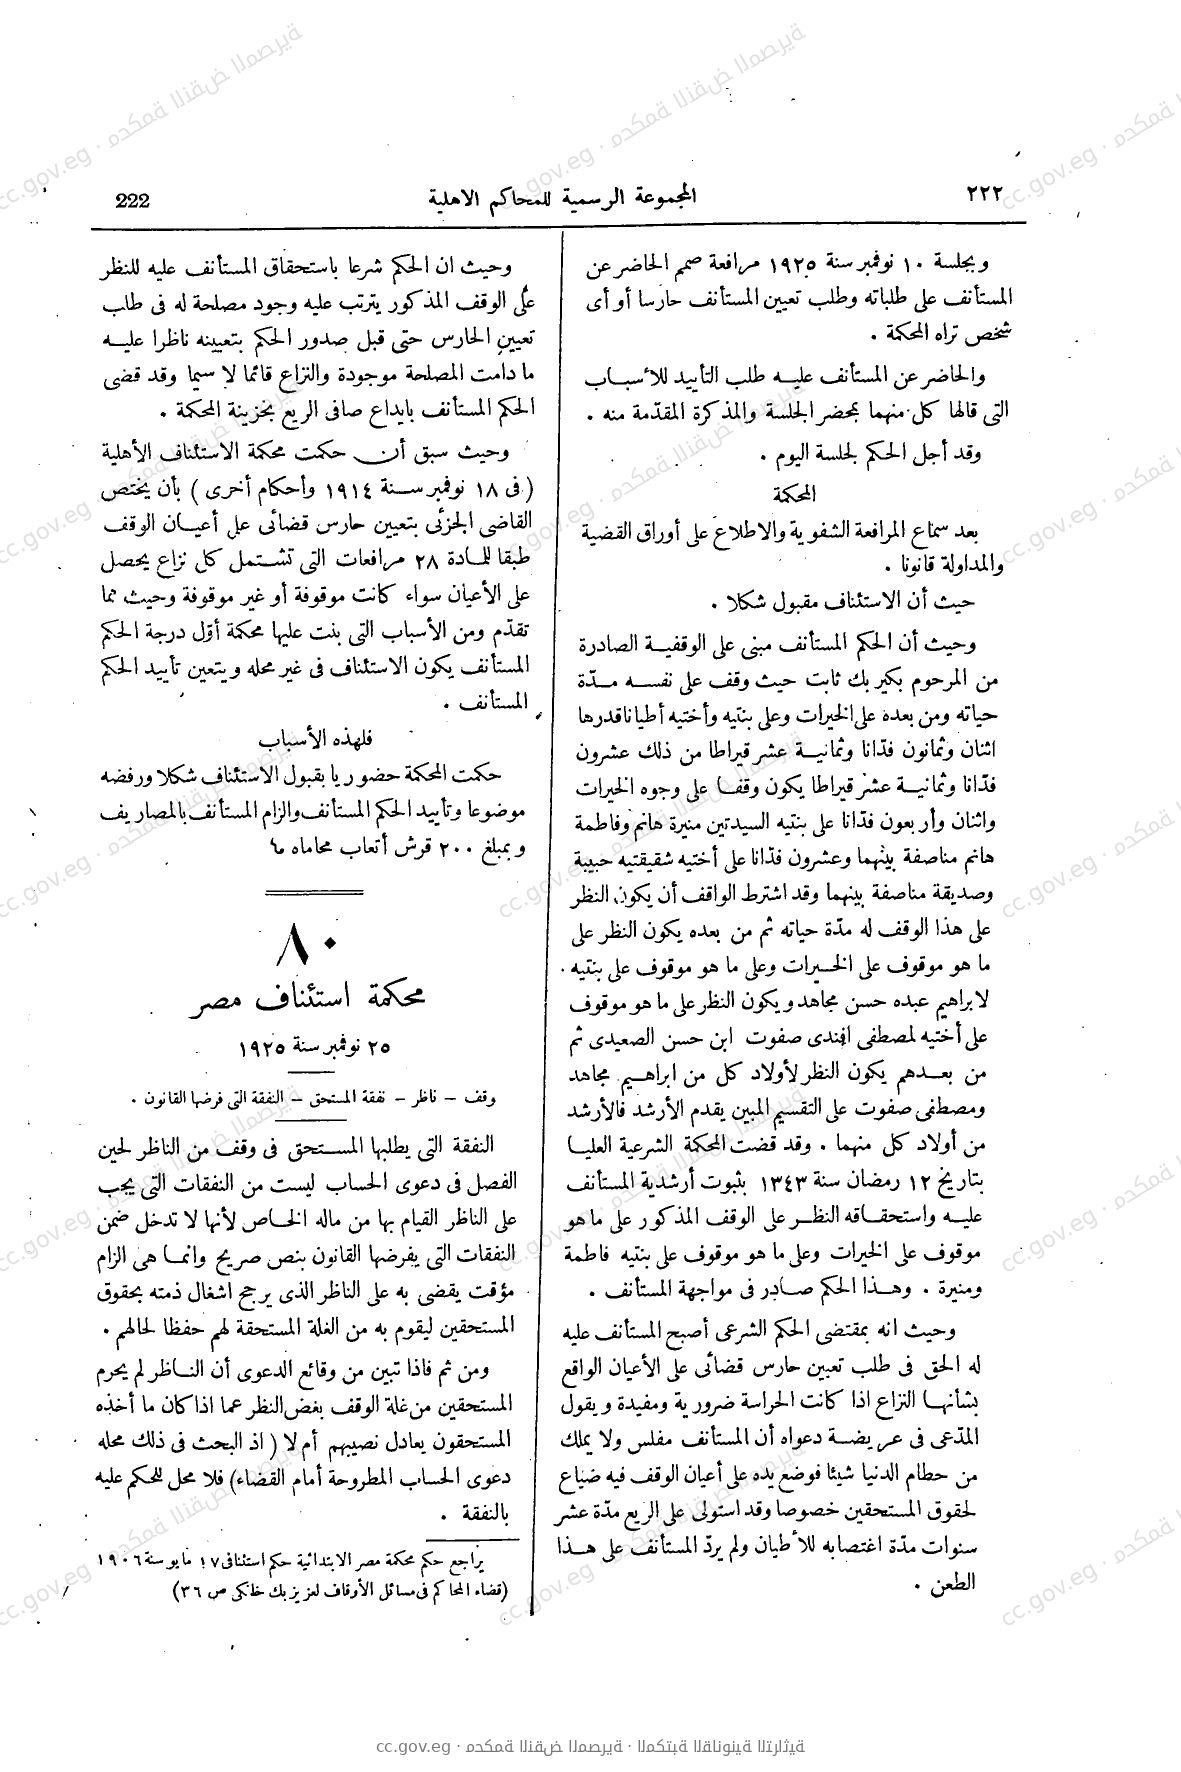 ٢٢٢
المجموعة الرسمية للمحاكم الاهلية
222
وبجلسة ١٠ نوفمبر سنة ١٩٢٥ مرافعة صمم الحاضر عن
المستأنف على طلباته وطلب تعيين المستأنف حارسا أو أى
شخص تراه المحكمة .
والحاضر عن المستأنف عليه طلب التأييد للأسباب
التى قالها كل منهما بمحضر الجلسة والمذكرة المقدّمة منه .
وقد أجل الحكم لجلسة اليوم .
المحكمة
بعد سماع المرافعة الشفوية والاطلاع على أوراق القضية
والمداولة قانونا .
حيث أن الاستئناف مقبول شكلا .
وحيث أن الحكم المستأنف مبنى على الوقفية الصادرة
من المرحوم بكير بك ثابت حيث وقف على نفسه مدّة
حياته ومن بعده على الخيرات وعلى بنتيه وأختيه أطيانا قدرها
اثنان وثمانون فدّانا وثمانية عشر قيراطا من ذلك عشرون
فدّانا وثمانية عشر قيراطا يكون وقفا على وجوه الخيرات
واثنان وأربعون فدّانا على بنتيه السيدتين منيرة هانم وفاطمة
هانم مناصفة بينهما وعشرون فدّانا على أختيه شقيقتيه حبيبة
وصديقة مناصفة بينهما وقد اشترط الواقف أن يكون النظر
على هذا الوقف له مدّة حياته ثم من بعده يكون النظر على
ما هو موقوف على الخيرات وعلى ما هو موقوف على بنتيه
لابراهيم عبده حسن مجاهد ويكون النظر على ما هو موقوف
على أختيه لمصطفى افندى صفوت ابن حسن الصعيدى ثم
من بعدهم يكون النظر لأولاد كل من ابراهيم مجاهد
ومصطفى صفوت على التقسيم المبين يقدم الأرشد فالأرشد
من أولاد كل منهما . وقد قضت المحكمة الشرعية العليا
بتاريخ ١٢ رمضان سنة ١٣٤٣ بثبوت أرشدية المستأنف
عليه واستحقاقه النظر على الوقف المذكور على ما هو
موقوف على الخيرات وعلى ما هو موقوف على بنتيه فاطمة
ومنيرة . وهذا الحكم صادر فى مواجهة المستأنف .
وحيث انه بمقتضى الحكم الشرعى أصبح المستأنف عليه
له الحق فى طلب تعيين حارس قضائى على الأعيان الواقع
بشأنها النزاع اذا كانت الحراسة ضرورية ومفيدة ويقول
المدّعى فى عريضة دعواه أن المستأنف مفلس ولا يملك
من حطام الدنيا شيئا فوضع يده على أعيان الوقف فيه ضياع
لحقوق المستحقين خصوصا وقد استولى على الريع مدّة عشر
سنوات مدّة اغتصابه للأطيان ولم يردّ المستأنف على هذا
الطعن .
وحيث ان الحكم شرعا باستحقاق المستأنف عليه للنظر
على الوقف المذكور يترتب عليه وجود مصلحة له فى طلب
تعيين الحارس حتى قبل صدور الحكم بتعيينه ناظرا عليه
ما دامت المصلحة موجودة والنزاع قائما لا سيما وقد قضى
الحكم المستأنف بايداع صافى الريع بخزينة المحكمة .
وحيث سبق أن حكمت محكمة الاستئناف الأهلية
( فى ١٨ نوفمبر سنة ١٩١٤ وأحكام أخرى ) بأن يختص
القاضى الجزئى بتعيين حارس قضائى على أعيان الوقف
طبقا للمادة ٢٨ مرافعات التى تشتمل كل نزاع يحصل
على الأعيان سواء كانت موقوفة أو غير موقوفة وحيث مما
تقدّم ومن الأسباب التى بنت عليها محكمة أوّل درجة الحكم
المستأنف يكون الاستئناف فى غير محله ويتعين تأييد الحكم
المستأنف .
فلهذه الأسباب
حكمت المحكمة حضوريا بقبول الاستئناف شكلا ورفضه
موضوعا وتأييد الحكم المستأنف والزام المستأنف بالمصاريف
وبمبلغ ٢٠٠ قرش أتعاب محاماه
٨٠
محكمة استئناف مصر
٢٥ نوفمبر سنة ١٩٢٥
وقف – ناظر – نفقة المستحق – النفقة التى فرضها القانون .
النفقة التى يطلبها المستحق فى وقف من الناظر لحين
الفصل فى دعوى الحساب ليست من النفقات التى يجب
على الناظر القيام بها من ماله الخاص لأنها لا تدخل ضمن
النفقات التى يفرضها القانون بنص صريح وانما هى الزام
مؤقت يقضى به على الناظر الذى يرجح اشغال ذمته بحقوق
المستحقين ليقوم به من الغلة المستحقة لهم حفظا لحالهم .
ومن ثم فاذا تبين من وقائع الدعوى أن الناظر لم يحرم
المستحقين من غلة الوقف بغض النظر عما اذا كان ما أخذه
المستحقون يعادل نصيبهم أم لا ( اذ البحث فى ذلك محله
دعوى الحساب المطروحة أمام القضاء) فلا محل للحكم عليه
بالنفقة .
يراجع حكم محكمة مصر الابتدائية حكم استئنافى ١٧ مايو سنة ١٩٠٦
(قضاء المحاكم فى مسائل الأوقاف لعزيز بك خانكى ص ٣٦)
cc.gov.eg · محكمة النقض المصرية · المكتبة القانونية التراثية